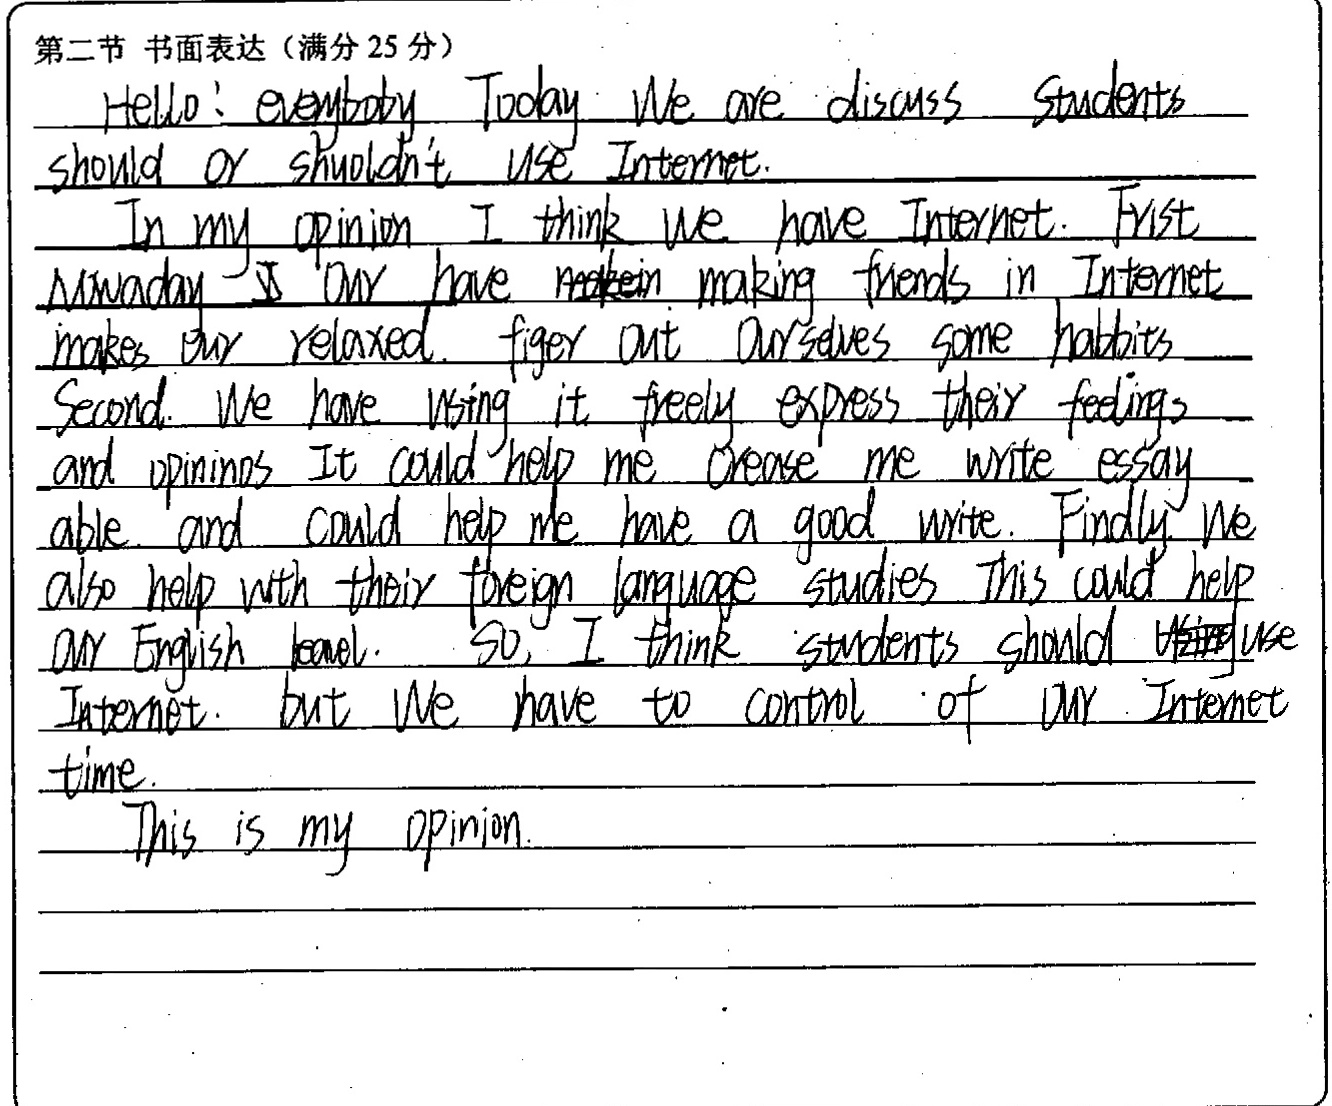 第二节 书面表达（满分 25 分）
Hello! everyboby Today We are discuss Students
should or shuoldn't use Internet.
In my opinion I think we have Internet. Frist
our have making friends in Internet
makes our relaxed. figer out Ourselves some habbits
Second. We have using it freely express their feelings
and opininos It could help me crease me write essay
able. and could help me have a good write. Findly. We
also help with their foreign language studies This could help
our English So, I think students should use
Internet. but We have to control of our Internet
time.
This is my opinion.